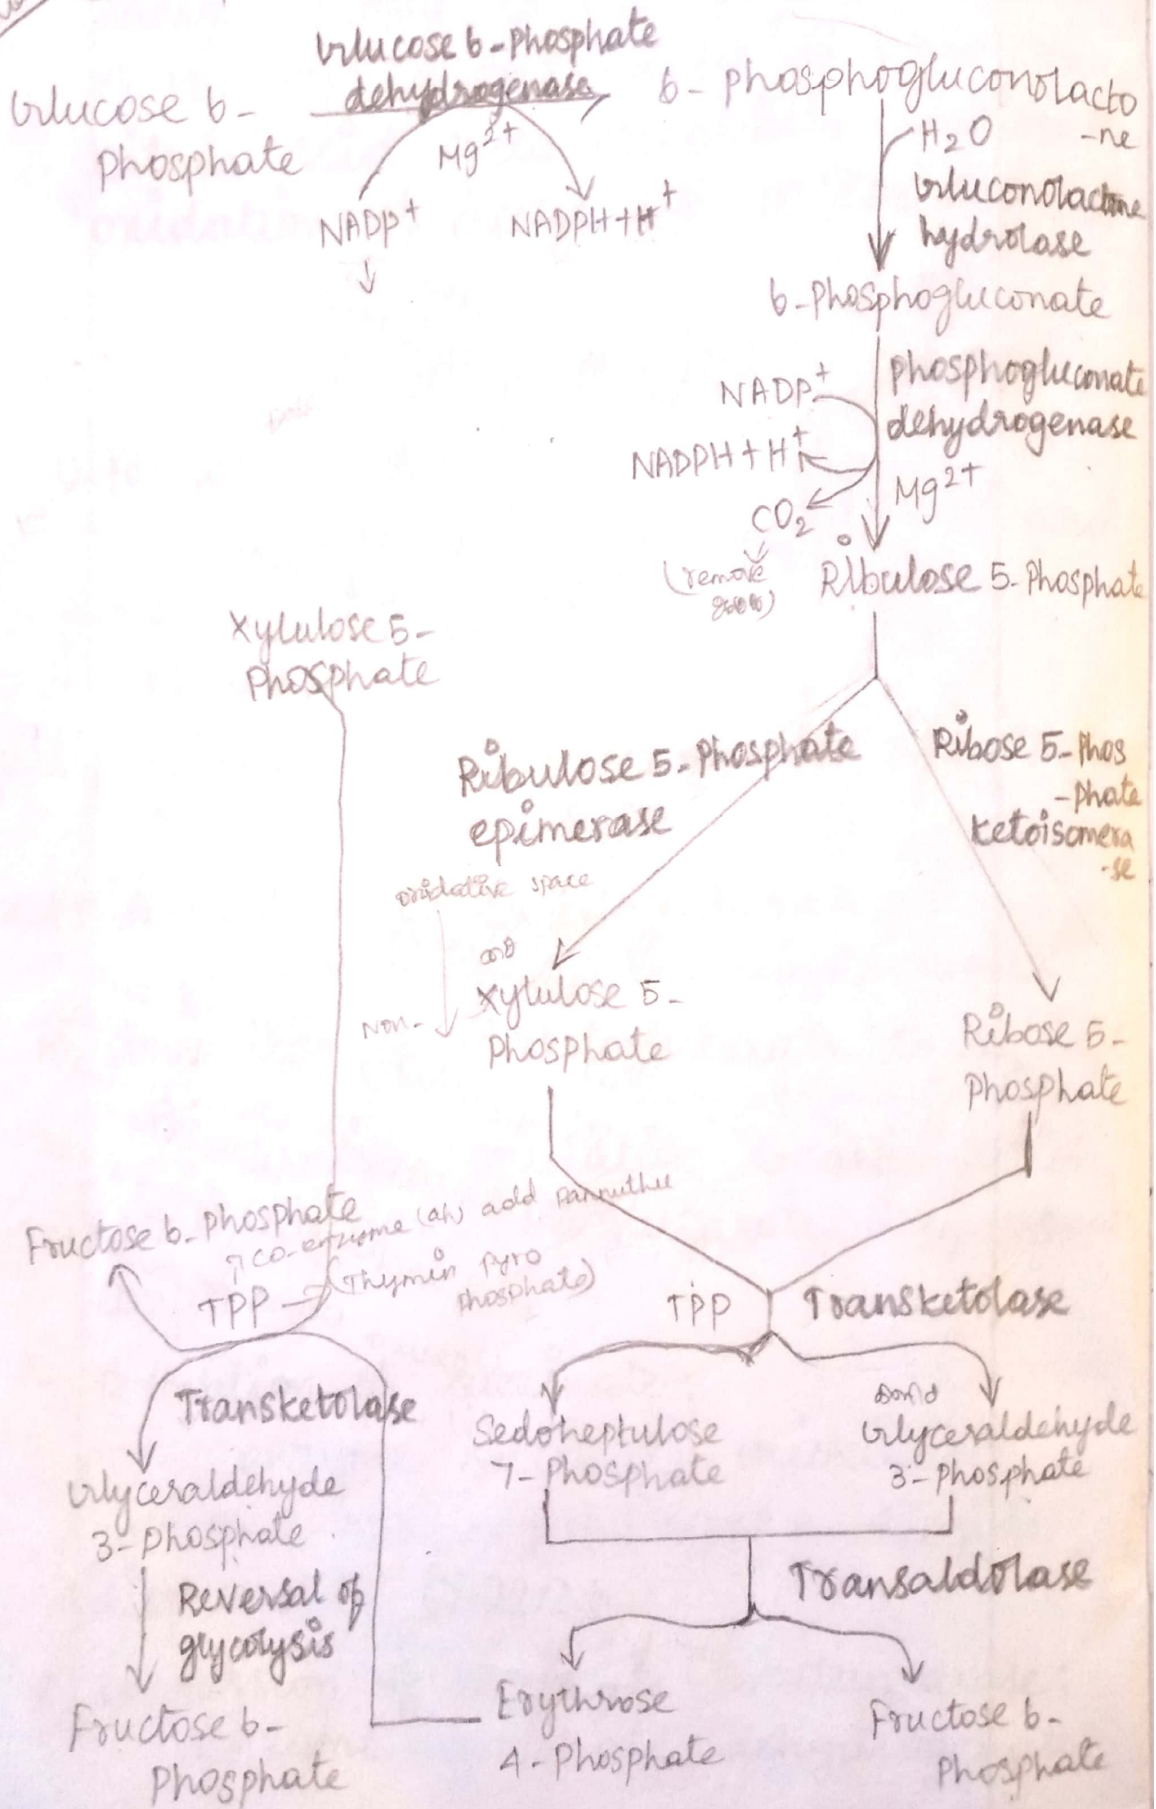 Glucose 6-Phosphate
dehydrogenase
Glucose 6-
Phosphate
Mg2+
NADP+
NADPH+H+
↓
6-Phosphogluconolacto
-ne
H2O
Gluconolactone
hydrolase
6-Phosphogluconate
Phosphogluconate
dehydrogenase
NADP+
NADPH+H+
Mg2+
CO2
(remove
Ribulose 5-Phosphate
Xylulose 5-
Phosphate
Ribulose 5-Phosphate
epimerase
Ribose 5-Phos
-phate
ketoisomera
-se
oxidative space
Non-
Xylulose 5-
Phosphate
Ribose 5-
Phosphate
Fructose 6-Phosphate
co-enzyme (ah) add pannuthu
TPP
(Thymin Pyro
Phosphate)
TPP
Transketolase
Transketolase
Sedoheptulose
7-Phosphate
Glyceraldehyde
3-Phosphate
Glyceraldehyde
3-Phosphate
Reversal of
glycolysis
Transaldolase
Fructose 6-
Phosphate
Erythrose
4-Phosphate
Fructose 6-
Phosphate